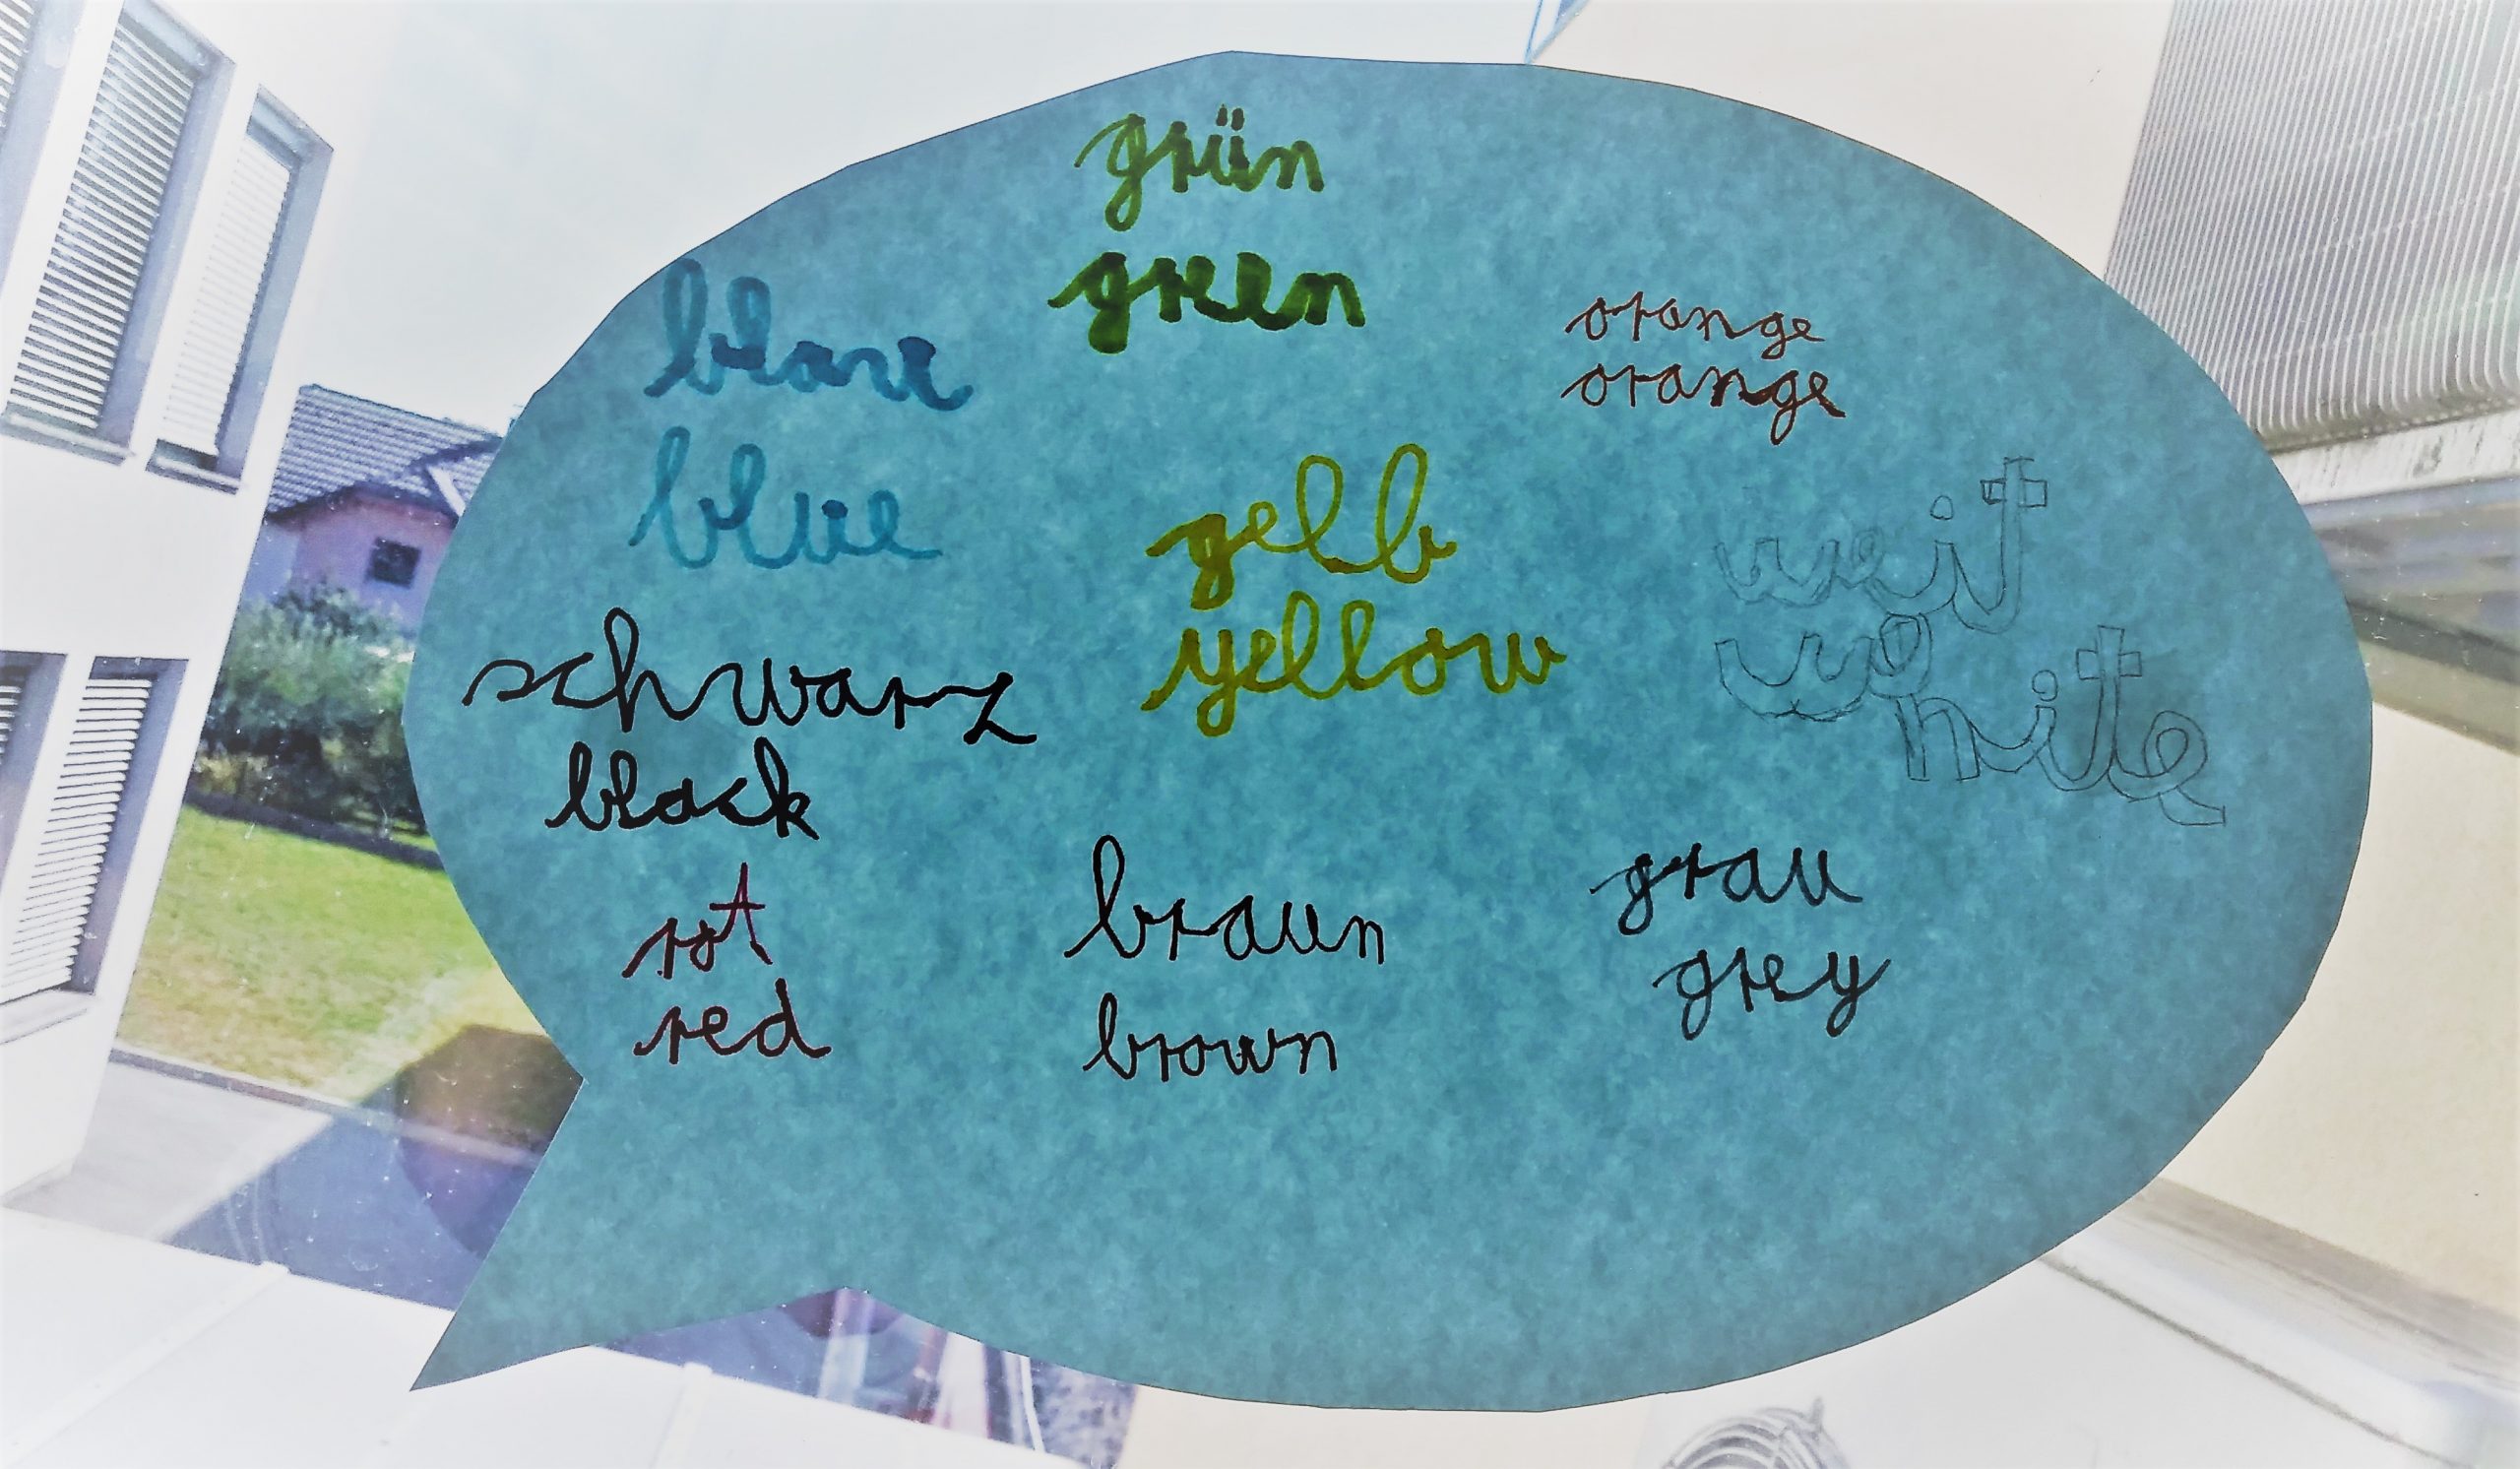 grün
green
blau
blue
orange
orange
gelb
yellow
weit
white
schwarz
black
rot
red
braun
brown
grau
grey